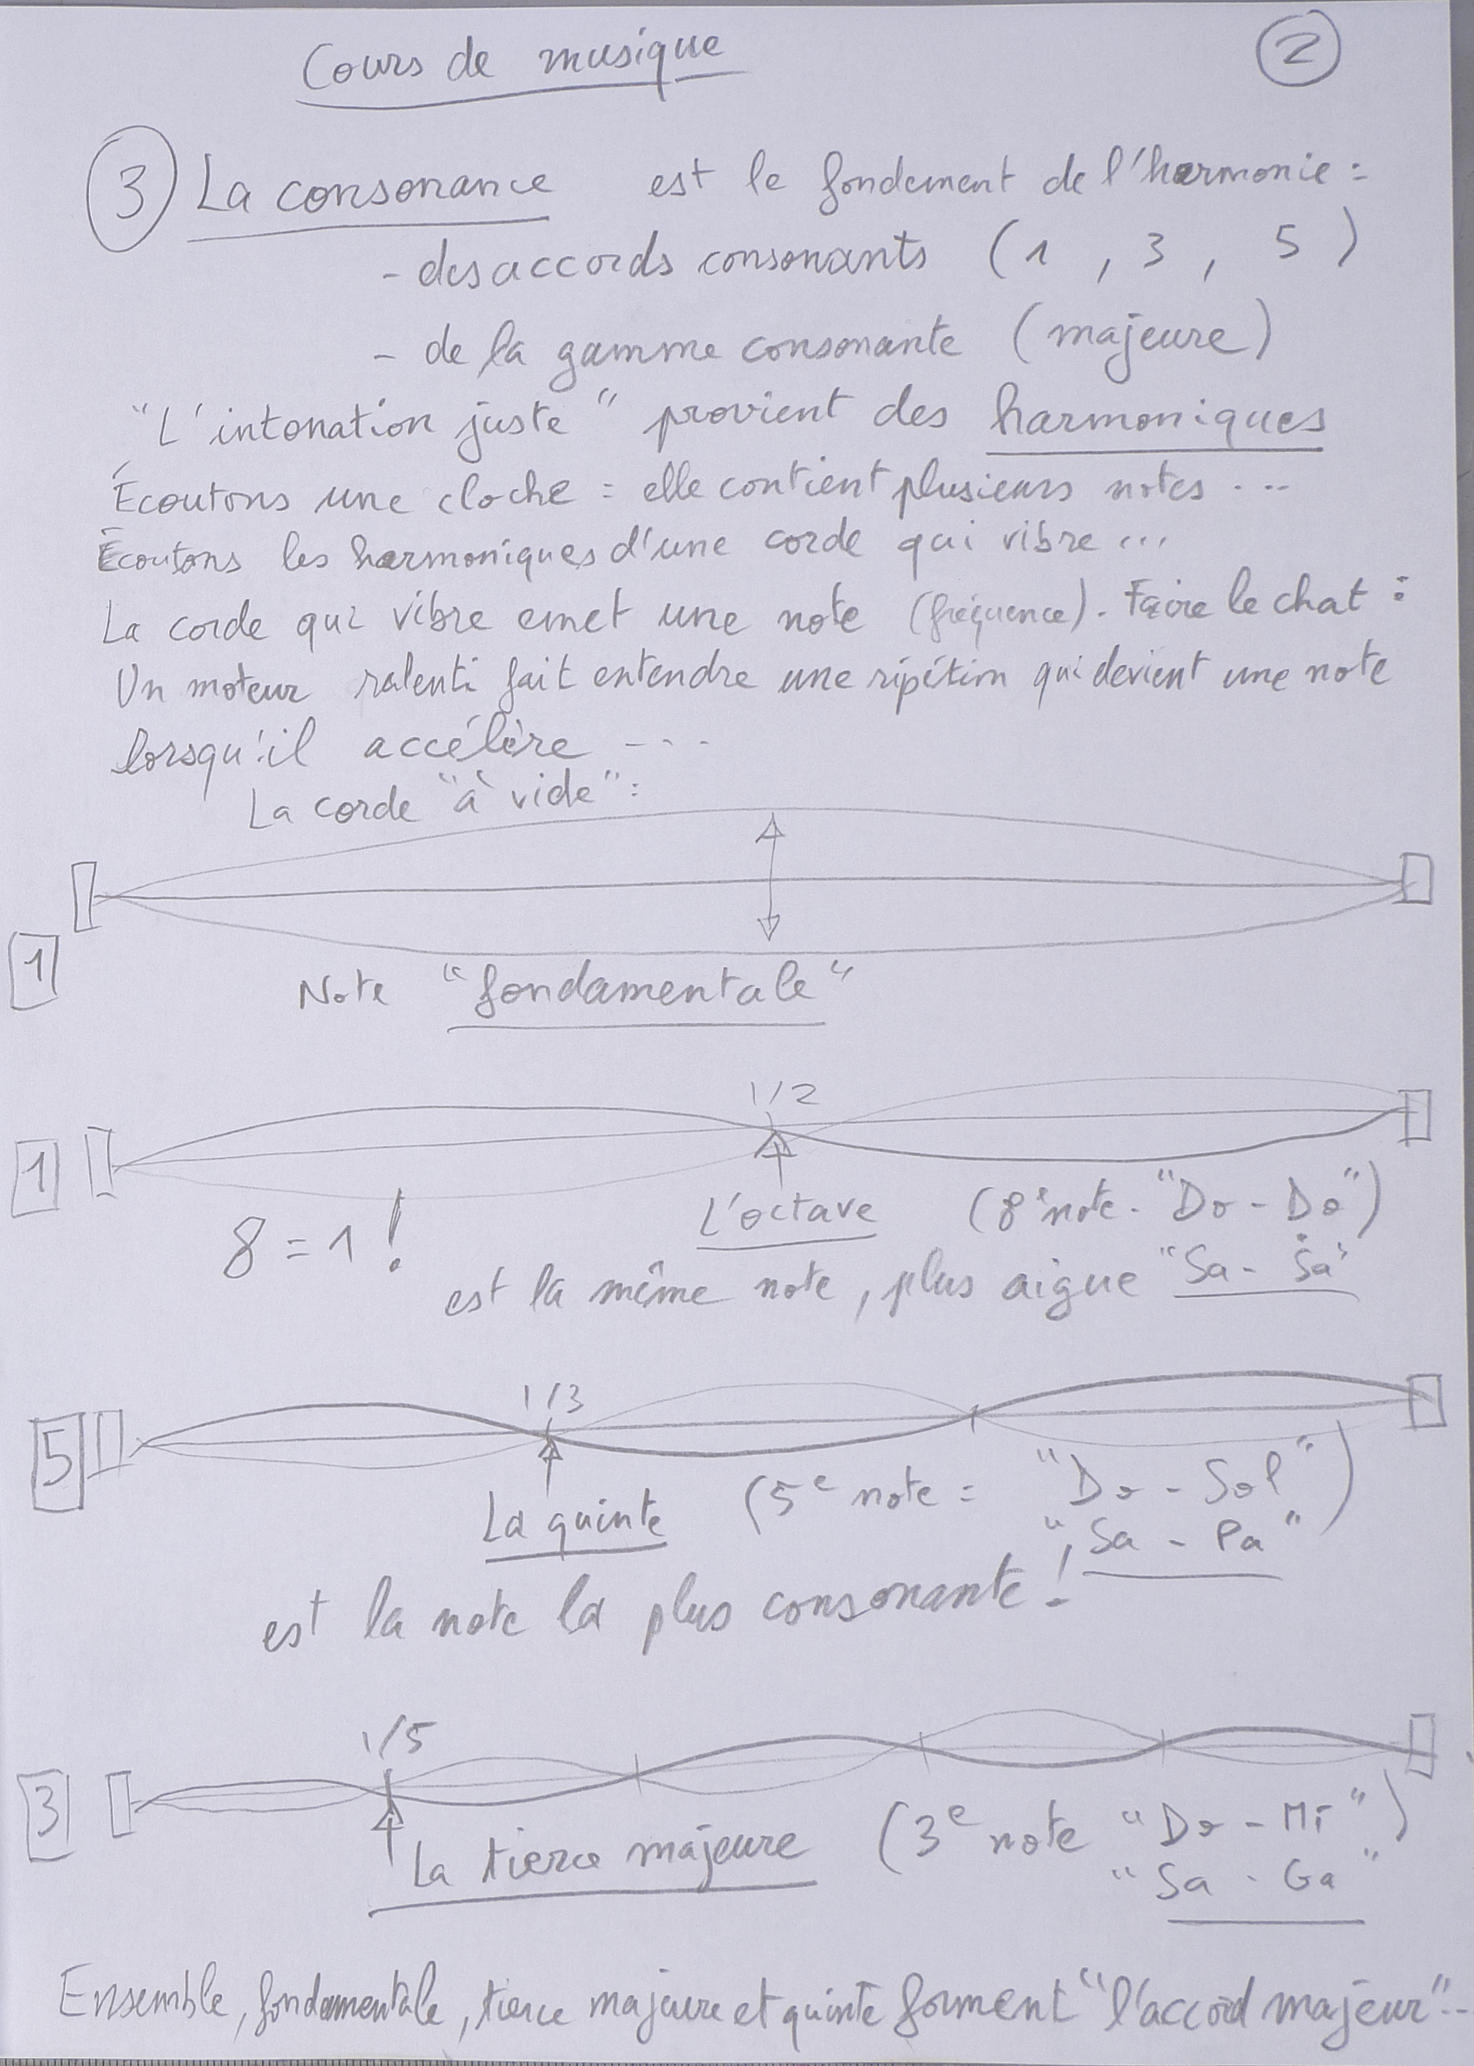 Cours de musique
2
3 La consonance est le fondement de l'harmonie :
- des accords consonants (1, 3, 5)
- de la gamme consonante (majeure)
"L'intonation juste" provient des harmoniques
Écoutons une cloche : elle contient plusieurs notes ...
Écoutons les harmoniques d'une corde qui vibre ...
La corde qui vibre emet une note (fréquence). Faire le chat :
Un moteur ralenti fait entendre une répétition qui devient une note
lorsqu'il accélère ...
La corde "à vide" :
1
Note "fondamentale"
1/2
1
L'octave (8e note. "Do - Do")
8 = 1 !
est la même note, plus aigue "Sa - Ṡa"
1/3
5
La quinte (5e note = "Do - Sol")
"Sa - Pa"
est la note la plus consonante !
1/5
3
La tierce majeure (3e note "Do - Mi")
"Sa - Ga"
Ensemble, fondamentale, tierce majeure et quinte forment "l'accord majeur"...